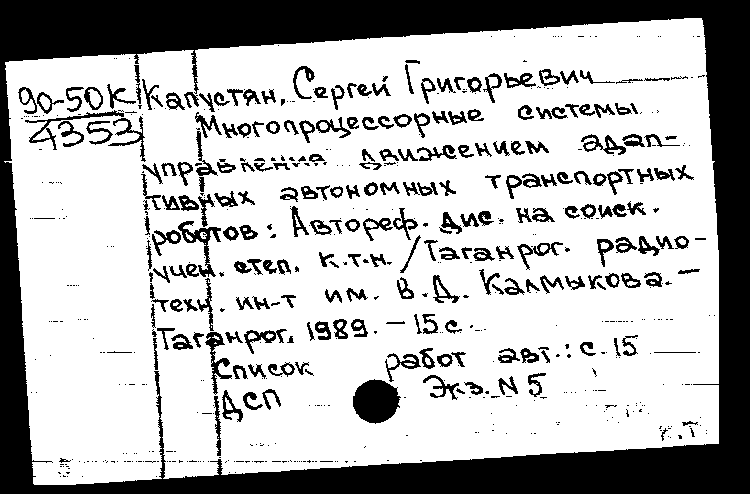 90-50К Капустян, Сергей Григорьевич
4353 Многопроцессорные системы
управления движением адап-
тивных автономных транспортных
роботов: Автореф. дис. на соиск.
учен. степ. к.т.н. / Таганрог. радио-
техн. ин-т им. В.Д. Калмыкова. –
Таганрог, 1989. – 15 с.
Список работ авт.: с. 15
ДСП Экз. N 5
К.Т